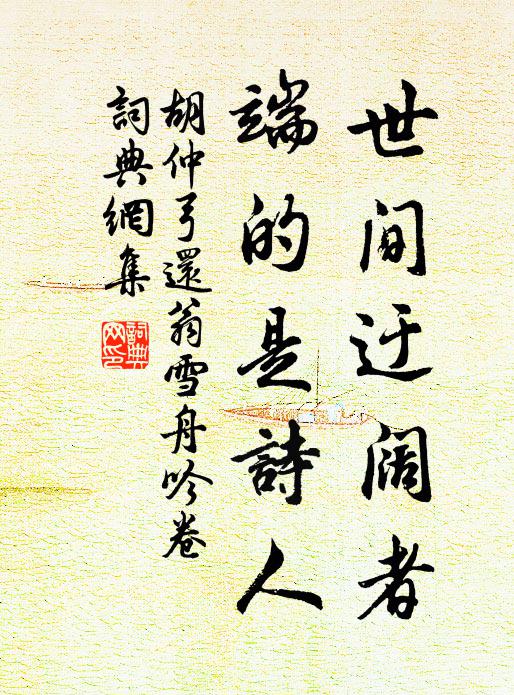 世間迂阔者
端的是詩人
胡仲弓還翁雪舟吟卷
詞典網集
詞典
网印